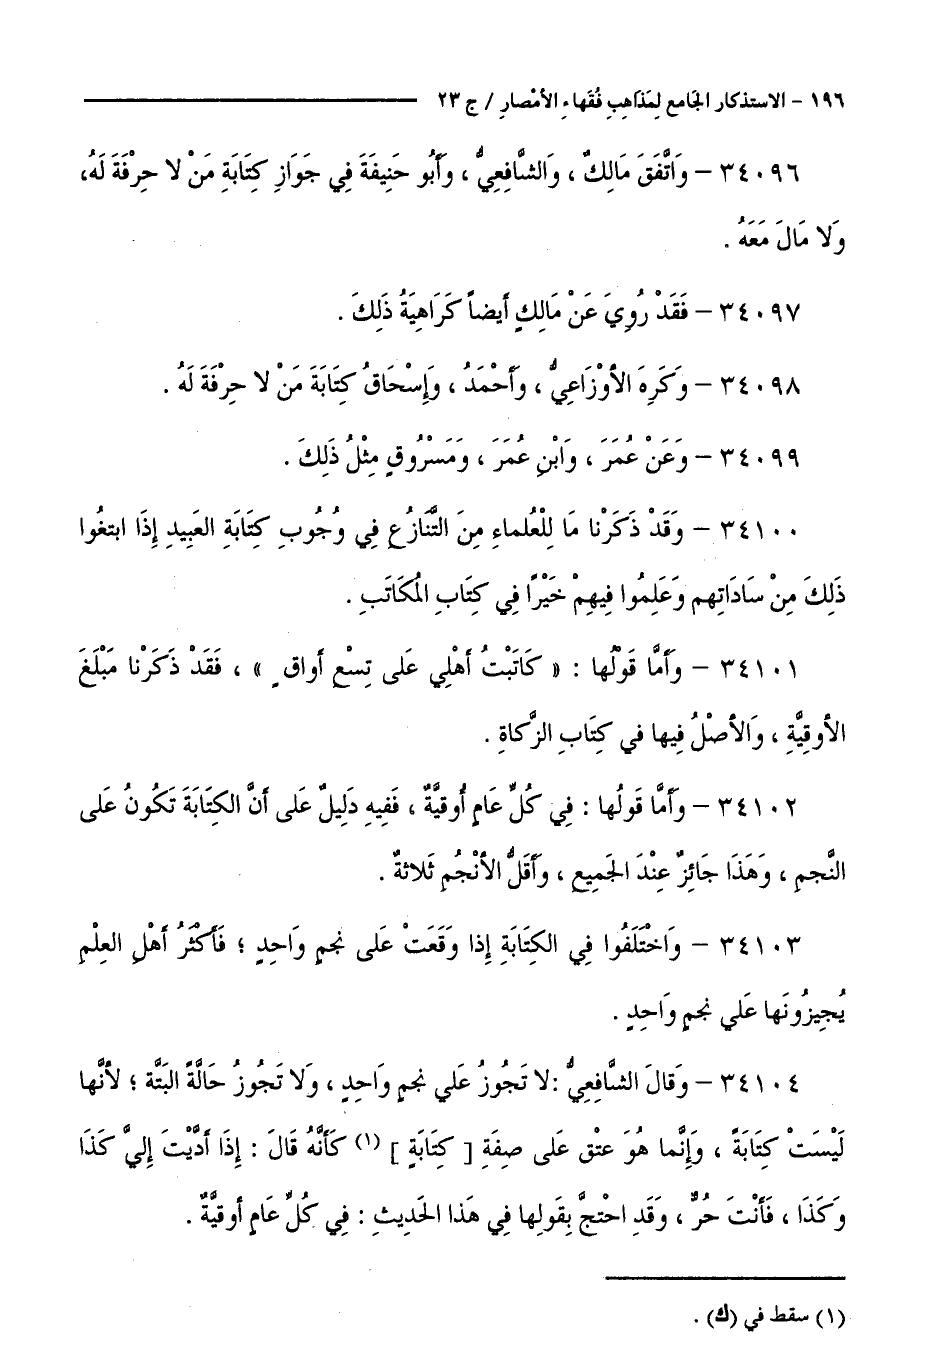 ١٩٦ - الاستذكار الجَامع لِمَذَاهِبِ فُقَهاءِ الأمْصار / ج ٢٣
٣٤٠٩٦ – وَاتَّفَقَ مَالِكٌ ، وَالشَّافِعِيُّ ، وَأَبُو حَنِيفَةَ فِي جَوَازِ كِتَابَةِ مَنْ لا حِرْفَةَ لَهُ،
وَلا مَالَ مَعَهُ .
٣٤٠٩٧ – فَقَدْ رُوِيَ عَنْ مَالِكٍ أيضاً كَرَاهِيَةُ ذَلِكَ .
٣٤٠٩٨ – وَكَرِهَ الأوْزَاعِيُّ ، وَأَحْمَدُ ، وَإِسْحَاقُ كِتَابَةَ مَنْ لا حِرْفَةَ لَهُ .
٣٤٠٩٩ – وَعَنْ عُمَرَ ، وَابْنِ عُمَرَ ، وَمَسْرُوقٍ مِثْلُ ذَلِكَ .
٣٤١٠٠ – وَقَدْ ذَكَرْنا مَا لِلْعُلماءِ مِنَ التَّنَازُعِ فِي وُجُوبِ كِتَابَةِ العَبِيدِ إِذَا ابتغُوا
ذَلِكَ مِنْ سَادَاتِهم وَعَلِمُوا فِيهِمْ خَيْرًا فِي كِتَابِ المُكَاتَبِ .
٣٤١٠١ – وَأَمَّا قَوْلُها : « كَاتَبْتُ أهْلِي عَلى تِسْعِ أواقٍ » ، فَقَدْ ذَكَرْنا مَبْلَغَ
الأوقِيَّةِ ، وَالأصْلُ فِيها في كِتَابِ الزَّكاةِ .
٣٤١٠٢ – وَأَمَّا قَولُها : فِي كُلِّ عَامٍ أُوقيَّةٌ ، فَفِيهِ دَلِيلٌ عَلى أنَّ الكِتَابَةَ تَكُونُ عَلى
النَّجمِ ، وَهَذَا جَائِزٌ عِنْدَ الجَمِيعِ ، وَأَقَلُّ الأنْجُمِ ثَلاثةٌ .
٣٤١٠٣ – وَاخْتَلَفُوا فِي الكِتَابَةِ إِذا وَقَعَتْ عَلى نجمٍ وَاحِدٍ ؛ فَأَكْثَرُ أهْلِ العِلْمِ
يُجِيزُونَها عَلي نجمٍ وَاحِدٍ .
٣٤١٠٤ – وَقالَ الشَّافِعِيُّ :لا تَجُوزُ عَلي نجمٍ وَاحِدٍ ، وَلا تَجُوزُ حَالَّةً البَتَّة ؛ لأنَّها
لَيْسَتْ كِتَابَةً ، وَإِنَّما هُوَ عتْق عَلى صِفَةِ [ كِتَابَةٍ ] (١) كَأَنَّهُ قَالَ : إِذَا أدَّيْتَ إِليَّ كَذَا
وَكَذَا ، فَأَنْتَ حُرٌّ ، وَقَدِ احْتجَّ بِقَولِها فِي هَذا الحَدِيثِ : فِي كُلِّ عَامٍ أوقيَّةٌ .
(١) سقط في (ك) .